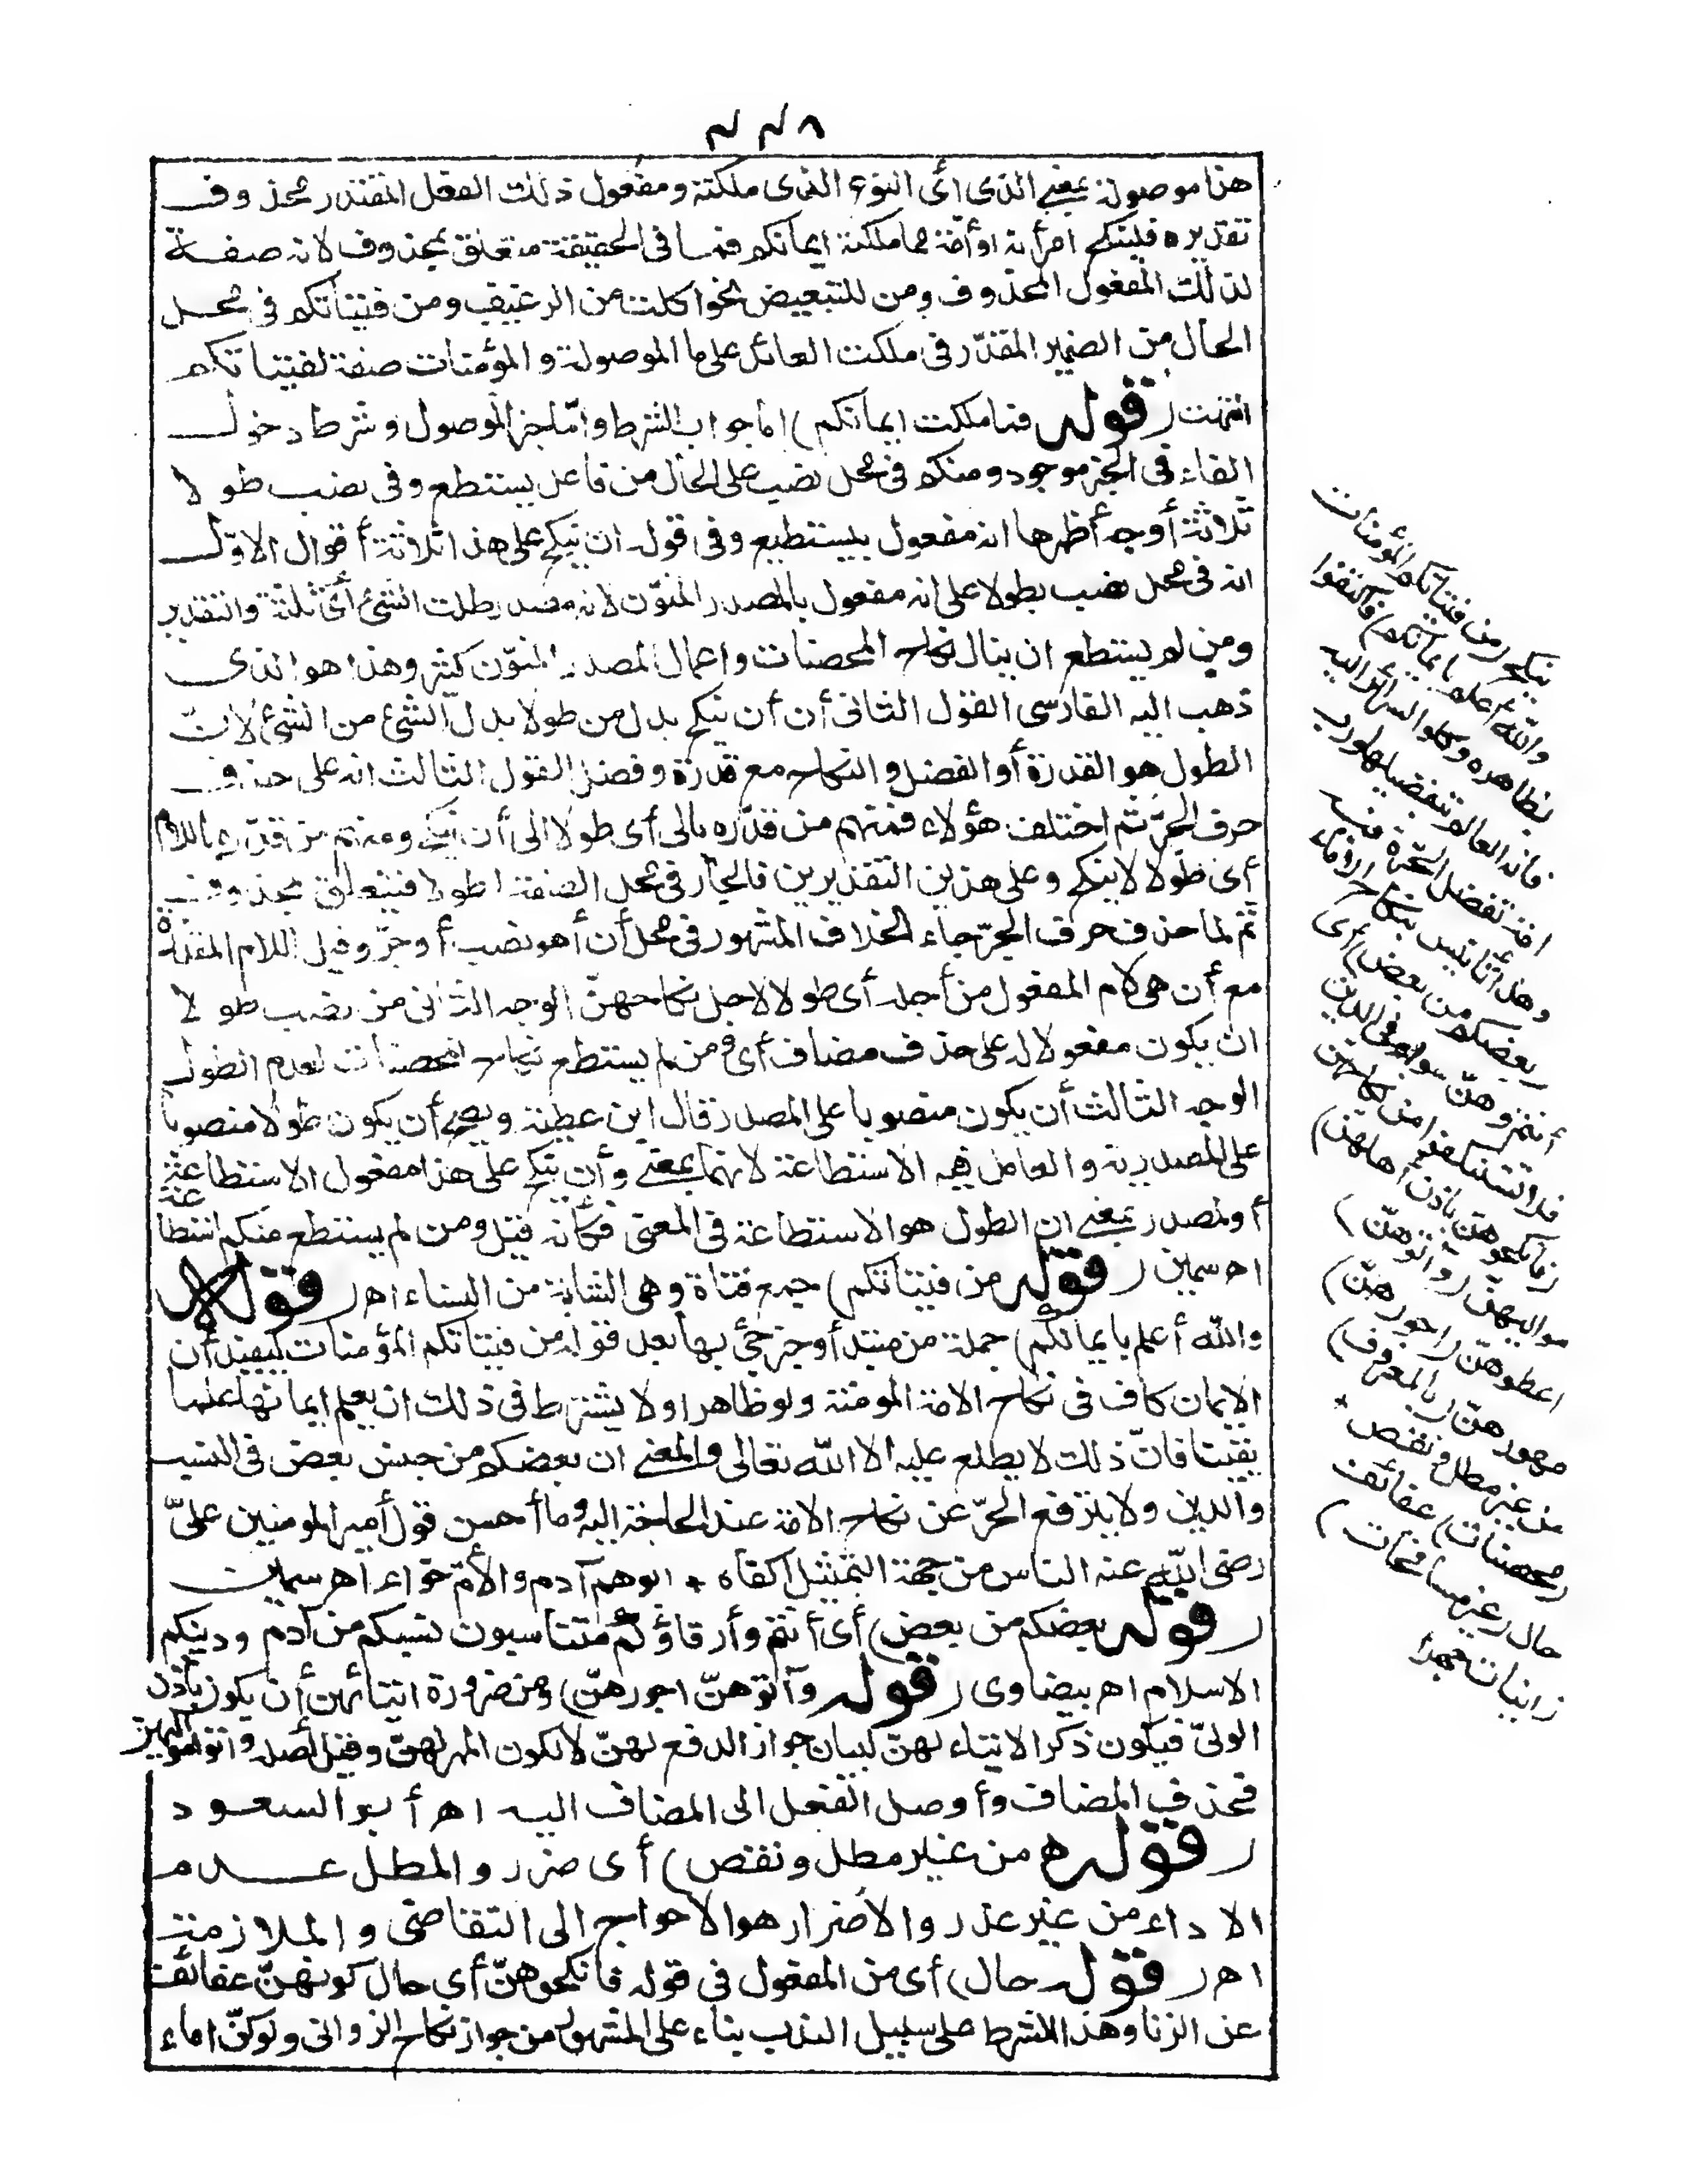 ٤٤٨
هذا موصولة بمعنى الذى أى النوع الذى ملكته ومفعول ذلك الفعل المقدر محذوف
تقديره فلينكح امرأة او أمة مما ملكته ايمانكم فمما فى الحقيقة متعلق بمحذوف لانه صفة
لذلك المفعول المحذوف ومن للتبعيض نحو اكلت من الرغيف ومن فتياتكم فى محل
الحال من الضمير المقدّر فى ملكت العائد على ما الموصولة والمؤمنات صفة لفتياتكم
انتهت (قوله فمما ملكت ايمانكم) اما جواب الشرط وامّا خبر الموصول وشرط دخول
الفاء فى الخبر موجود ومنكم فى محل نصب على الحال من فاعل يستطع وفى نصب طولا
ثلاثة أوجه أظهرها انه مفعول بيستطيع وفى قوله ان ينكح على هذا ثلاثة أقوال الاوّل
انه فى محل نصب بطولا على انه مفعول بالمصدر المنوّن لانه مصدر طلت الشئ أى نلته والتقدير
ومن لم يستطع ان ينال نكاح المحصنات واعمال المصدر المنوّن كثير وهذا هو الذى
ذهب اليه الفارسى القول الثانى أن أن ينكح بدل من طولا بدل الشئ من الشئ لانّ
الطول هو القدرة أو الفضل والنكاح مع قدرة وفضل القول الثالث انه على حذف
حرف الجرّ ثم اختلف هؤلاء فمنهم من قدّره بالى أى طولا الى أن ينكح ومنهم من قدّره باللام
أى طولا لان ينكح وعلى هذين التقديرين فالجارّ فى محل الصفة لطولا فيتعلق بمحذوف
ثم لما حذف حرف الجرّ جاء الخلاف المشهور فى محل أن أهو نصب أو جرّ وقيل اللام المقدّرة
مع أن هى لام المفعول من أجله أى طولا لاجل نكاحهنّ الوجه الثانى من نصب طولا
ان يكون مفعولا له على حذف مضاف أى ومن لم يستطع نكاح المحصنات لعدم الطول
الوجه الثالث أن يكون منصوبا على المصدر قال ابن عطية ويصح أن يكون طولا منصوبا
على المصدرية والعامل فيه الاستطاعة لانهما بمعنى وأن ينكح على هذا مفعول الاستطاعة
أو المصدر بمعنى ان الطول هو الاستطاعة فى المعنى فكأنه قيل ومن لم يستطع منكم استطاعة
اه سمين (قوله من فتياتكم) جمع فتاة وهى الشابة من النساء اه (قوله
والله أعلم بايمانكم) جملة من مبتدأ وخبر جئ بها بعد قوله من فتياتكم المؤمنات ليفيد أن
الايمان كاف فى نكاح الامة المؤمنة ولو ظاهرا ولا يشترط فى ذلك ان يعلم ايمانها علما
يقينا فانّ ذلك لا يطلع عليه الا الله تعالى والمعنى ان بعضكم من جنس بعض فى النسب
والدين ولا يترفع الحرّ عن نكاح الامة عند الحاجة اليه وما أحسن قول أمير المومنين علىّ
رضى الله عنه الناس من جهة التمثيل اكفاء * ابوهم آدم والأمّ حوّاء اه سمين
(قوله بعضكم من بعض) أى أنتم وأرقاؤكم متناسبون نسبكم من آدم ودينكم
الاسلام اه بيضاوى (قوله وآتوهنّ اجورهنّ) ومن ضرورة ايتائهن أن يكون باذن
الولىّ فيكون ذكر الايتاء لهنّ لبيان جواز الدفع لهنّ لا لكون المهر لهنّ وقيل أصله وآتوا مواليهنّ
فحذف المضاف وأوصل الفعل الى المضاف اليه اه أبو السعود
(قوله من غير مطل ونقص) أى ضرر والمطل عدم
الاداء من غير عذر والأضرار هو الاحواج الى التقاضى والملازمة
اه (قوله حال) أى من المفعول فى قوله فانكحوهنّ أى حال كونهنّ عفائف
عن الزنا وهذا الشرط على سبيل الندب بناء على المشهور من جواز نكاح الزوانى ولو كنّ اماء
ينكح (من فتياتكم المؤمنات
والله أعلم بايمانكم) فاكتفوا
بظاهره وكلوا السرائر اليه
فانه العالم بتفصيلها ورب
امة تفضل الحرّة فيه
وهذا تأنيس بنكاح الاماء
(بعضكم من بعض) أى
أنتم وهنّ سواء فى الدين
فلا تستنكفوا من نكاحهنّ
(فانكحوهنّ باذن أهلهنّ)
مواليهنّ (وآتوهنّ)
اعطوهنّ (اجورهنّ)
مهورهنّ (بالمعروف)
من غير مطل ونقص
(محصنات) عفائف
حال (غير مسافحات)
زانيات جهرا